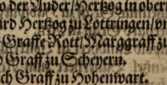 der Ander/ Hertzog in obern
ard Hertzog zu Lottringen/
Graffe Rott/ Marggraff zu
Graff zu Scheyern.
ch Graff zu Hohenwart.